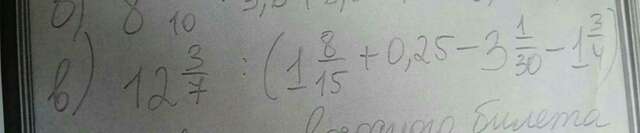 б) 8 10
в) 12 3/7 : (1 8/15 + 0,25 - 3 1/30 - 1 3/4)
билета